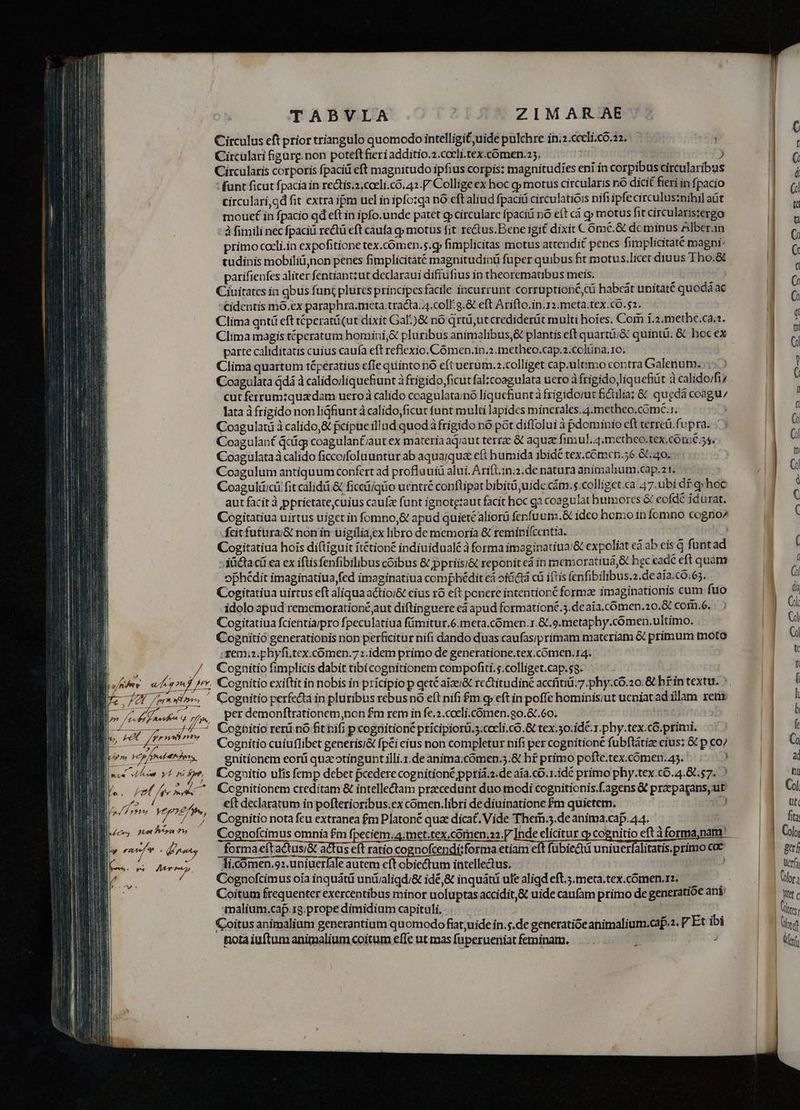 TABVLA ZIMARAE
Circulus eſt prior triangulo quomodo intelligit̃,uide pulchre in.2.cœli.cõ.22.
Circulari figurę non poteſt fieri additio.2.cœli.tex.cõmen.25.
Circularis corporis ſpaciũ eſt magnitudo ipſius corpis: magnitudies em̃ in corpibus circularibus
ſunt ſicut ſpacia in rectis.2.cœli.cõ.42. Collige ex hoc ꝙ motus circularis nõ dicit̃ fieri in ſpacio
circulari,qd fit extra ipm uel in ipſo:qa nõ eſt aliud ſpaciũ circulatiõis niſi ipſe circulus:nihil aũt
mouet̃ in ſpacio qd eſt in ipſo.unde patet ꝙ circulare ſpaciũ nõ eſt cã ꝙ motus ſit circularis:ergo
à ſimili nec ſpaciũ rectũ eſt cauſa ꝙ motus ſit rectus.Bene igit̃ dixit Cõmẽ.& dominus Alber.in
primo cœli.in expoſitione tex.cõmen.5.ꝙ ſimplicitas motus attendit̃ penes ſimplicitatẽ magni-
tudinis mobiliũ,non penes ſimplicitatẽ magnitudinũ ſuper quibus fit motus.licet diuus Tho.&
pariſienſes aliter ſentiant:ut declaraui diffuſius in theorematibus meis.
Ciuitates in qbus ſunt plures principes facile incurrunt corruptionẽ,cũ habeãt unitatẽ quodã ac
cidentis mõ.ex paraphra.meta.tracta.4.coll̃.9.& eſt Ariſto.in.12.meta.tex.cõ.52.
Clima qntũ eſt tẽperatũ(ut dixit Gal̃.)& nõ qrtũ,ut crediderũt multi hoĩes. Com̃ ĩ.2.methe.ca.2.
Clima magis tẽperatum homini,& pluribus animalibus,& plantis eſt quartũ:& quintũ. & hoc ex
parte caliditatis cuius cauſa eſt reflexio.Cõmen.in.2.metheo.cap.2.colũna.10.
Clima quartum tẽperatius eſſe quinto nõ eſt uerum.2.colliget cap.ultimo contra Galenum.
Coagulata qdã à calido/liquefiunt à frigido,ſicut ſal:coagulata uero à frigido,liquefiũt à calido/ſi-
cut ferrum:quædam uero à calido coagulata/nõ liquefiunt à frigido/ut fictilia: & quędã coagu-
lata à frigido non liq̃fiunt à calido,ſicut ſunt multi lapides minerales.4.metheo.cõmẽ.1.
Coagulatũ à calido,& p̃cipue illud quod à frigido nõ põt diſſolui à p̃dominio eſt terreũ.ſupra.
Coagulant̃ q̃cũqꝫ coagulant̃/aut ex materia aq̃/aut terræ & aquæ ſimul.4.metheo.tex.cõmẽ.34.
Coagulata à calido ſicco/ſoluuntur ab aqua/quæ eſt humida ibidẽ tex.cõmen.36.&.40.
Coagulum antiquum confert ad profluuiũ alui.Ariſt.in.2.de natura animalium.cap.21.
Coagulũ/cũ ſit calidũ & ſiccũ/qũo uentrẽ conſtipat bibitũ,uide cãm.5.colliget.ca.47.ubi dr̃ ꝙ hoc
aut facit à ꝓprietate,cuius cauſæ ſunt ignotę:aut facit hoc qa coagulat humores & eoſdẽ ĩdurat.
Cogitatiua uirtus uiget in ſomno,& apud quietẽ aliorũ ſenſuum.& ideo homo in ſomno cogno-
ſcit futura/& non in uigilia,ex libro de memoria & reminiſcentia.
Cogitatiua hoĩs diſtĩguit ĩtẽtionẽ indiuidualẽ à forma imaginatiua/& expoliat eã ab eis q̃ ſunt ad
iũcta cũ ea ex iſtis ſenſibilibus cõibus & ꝓpriis/& reponit eã in memoratiuã,& hęc eadẽ eſt quam
cõphẽdit imaginatiua,ſed imaginatiua comphẽdit eã cõiũctã cũ iſtis ſenſibilibus.2.de aĩa.cõ.63.
Cogitatiua uirtus eſt aliqua actio/& eius rõ eſt ponere intentionẽ formæ imaginationis cum ſuo
idolo apud rememorationẽ,aut diſtinguere eã apud formationẽ.3.de aĩa.cõmen.20.& com̃.6.
Cogitatiua ſcientia/pro ſpeculatiua ſũmitur.6.meta.cõmen.1.&.9.metaphy.cõmen.ultimo.
Cognitio generationis non perficitur niſi dando duas cauſas/primam materiam & primum moto
rem:2.phyſi.tex.cõmen.72.idem primo de generatione.tex.cõmen.14.
Cognitio ſimplicis dabit tibi cognitionem compoſiti.5.colliget.cap.58.
Cognitio exiſtit in nobis in pricipio p q̃etẽ aĩæ/& rectitudinẽ accñtiũ.7.phy.cõ.20.& hr̃ in textu.
Cognitio perfecta in pluribus rebus nõ eſt niſi ẽm ꝙ eſt in poſſe hominis/ut ueniat ad illam rem
per demonſtrationem,non ẽm rem in ſe.2.cœli.cõmen.90.&.60.
Cognitio rerũ nõ fit niſi p cognitionẽ prĩcipiorũ.3.cœli.cõ.& tex.30.idẽ.1.phy.tex.cõ.primi.
Cognitio cuiuſlibet generis/& ſpẽi eius non completur niſi per cognitionẽ ſubſtãtiæ eius: & p co-
gnitionem eorũ quæ cõtingunt illi.1.de anima.cõmen.5.& hr̃ primo poſte.tex.cõmen.43.
Cognitio ulĩs ſemp debet p̃cedere cognitionẽ ꝓpriã.2.de aĩa.cõ.1.idẽ primo phy.tex.cõ.4.&.57.
Cognitionem creditam & intellectam præcedunt duo modi cognitionis.ſ.agens & præparans,ut
eſt declaratum in poſterioribus.ex cõmen.libri de diuinatione ẽm quietem.
Cognitio nota ſeu extranea ẽm Platonẽ quæ dicat̃. Vide Them̃.3.de anima.cap̃.44.
Cognoſcimus omnia ẽm ſpeciem.4.met.tex.cõmen.22. Inde elicitur ꝙ cognitio eſt à forma,nam
forma eſt actus/& actus eſt ratio cognoſcendi:forma etiam eſt ſubiectũ uniuerſalitatis.primo cœ
li.cõmen.92.uniuerſale autem eſt obiectum intellectus.
Cognoſcimus oĩa inquãtũ unũ/aliqd/& idẽ,& inquãtũ ulẽ aliqd eſt.3.meta.tex.cõmen.12.
Coitum frequenter exercentibus minor uoluptas accidit,& uide cauſam primo de generatiõe ani
malium.cap̃.19.prope dimidium capituli.
Coitus animalium generantium quomodo fiat,uide in.5.de generatiõe animalium.cap̃.2. Et ibi
nota iuſtum animalium coitum eſſe ut mas ſuperueniat feminam.